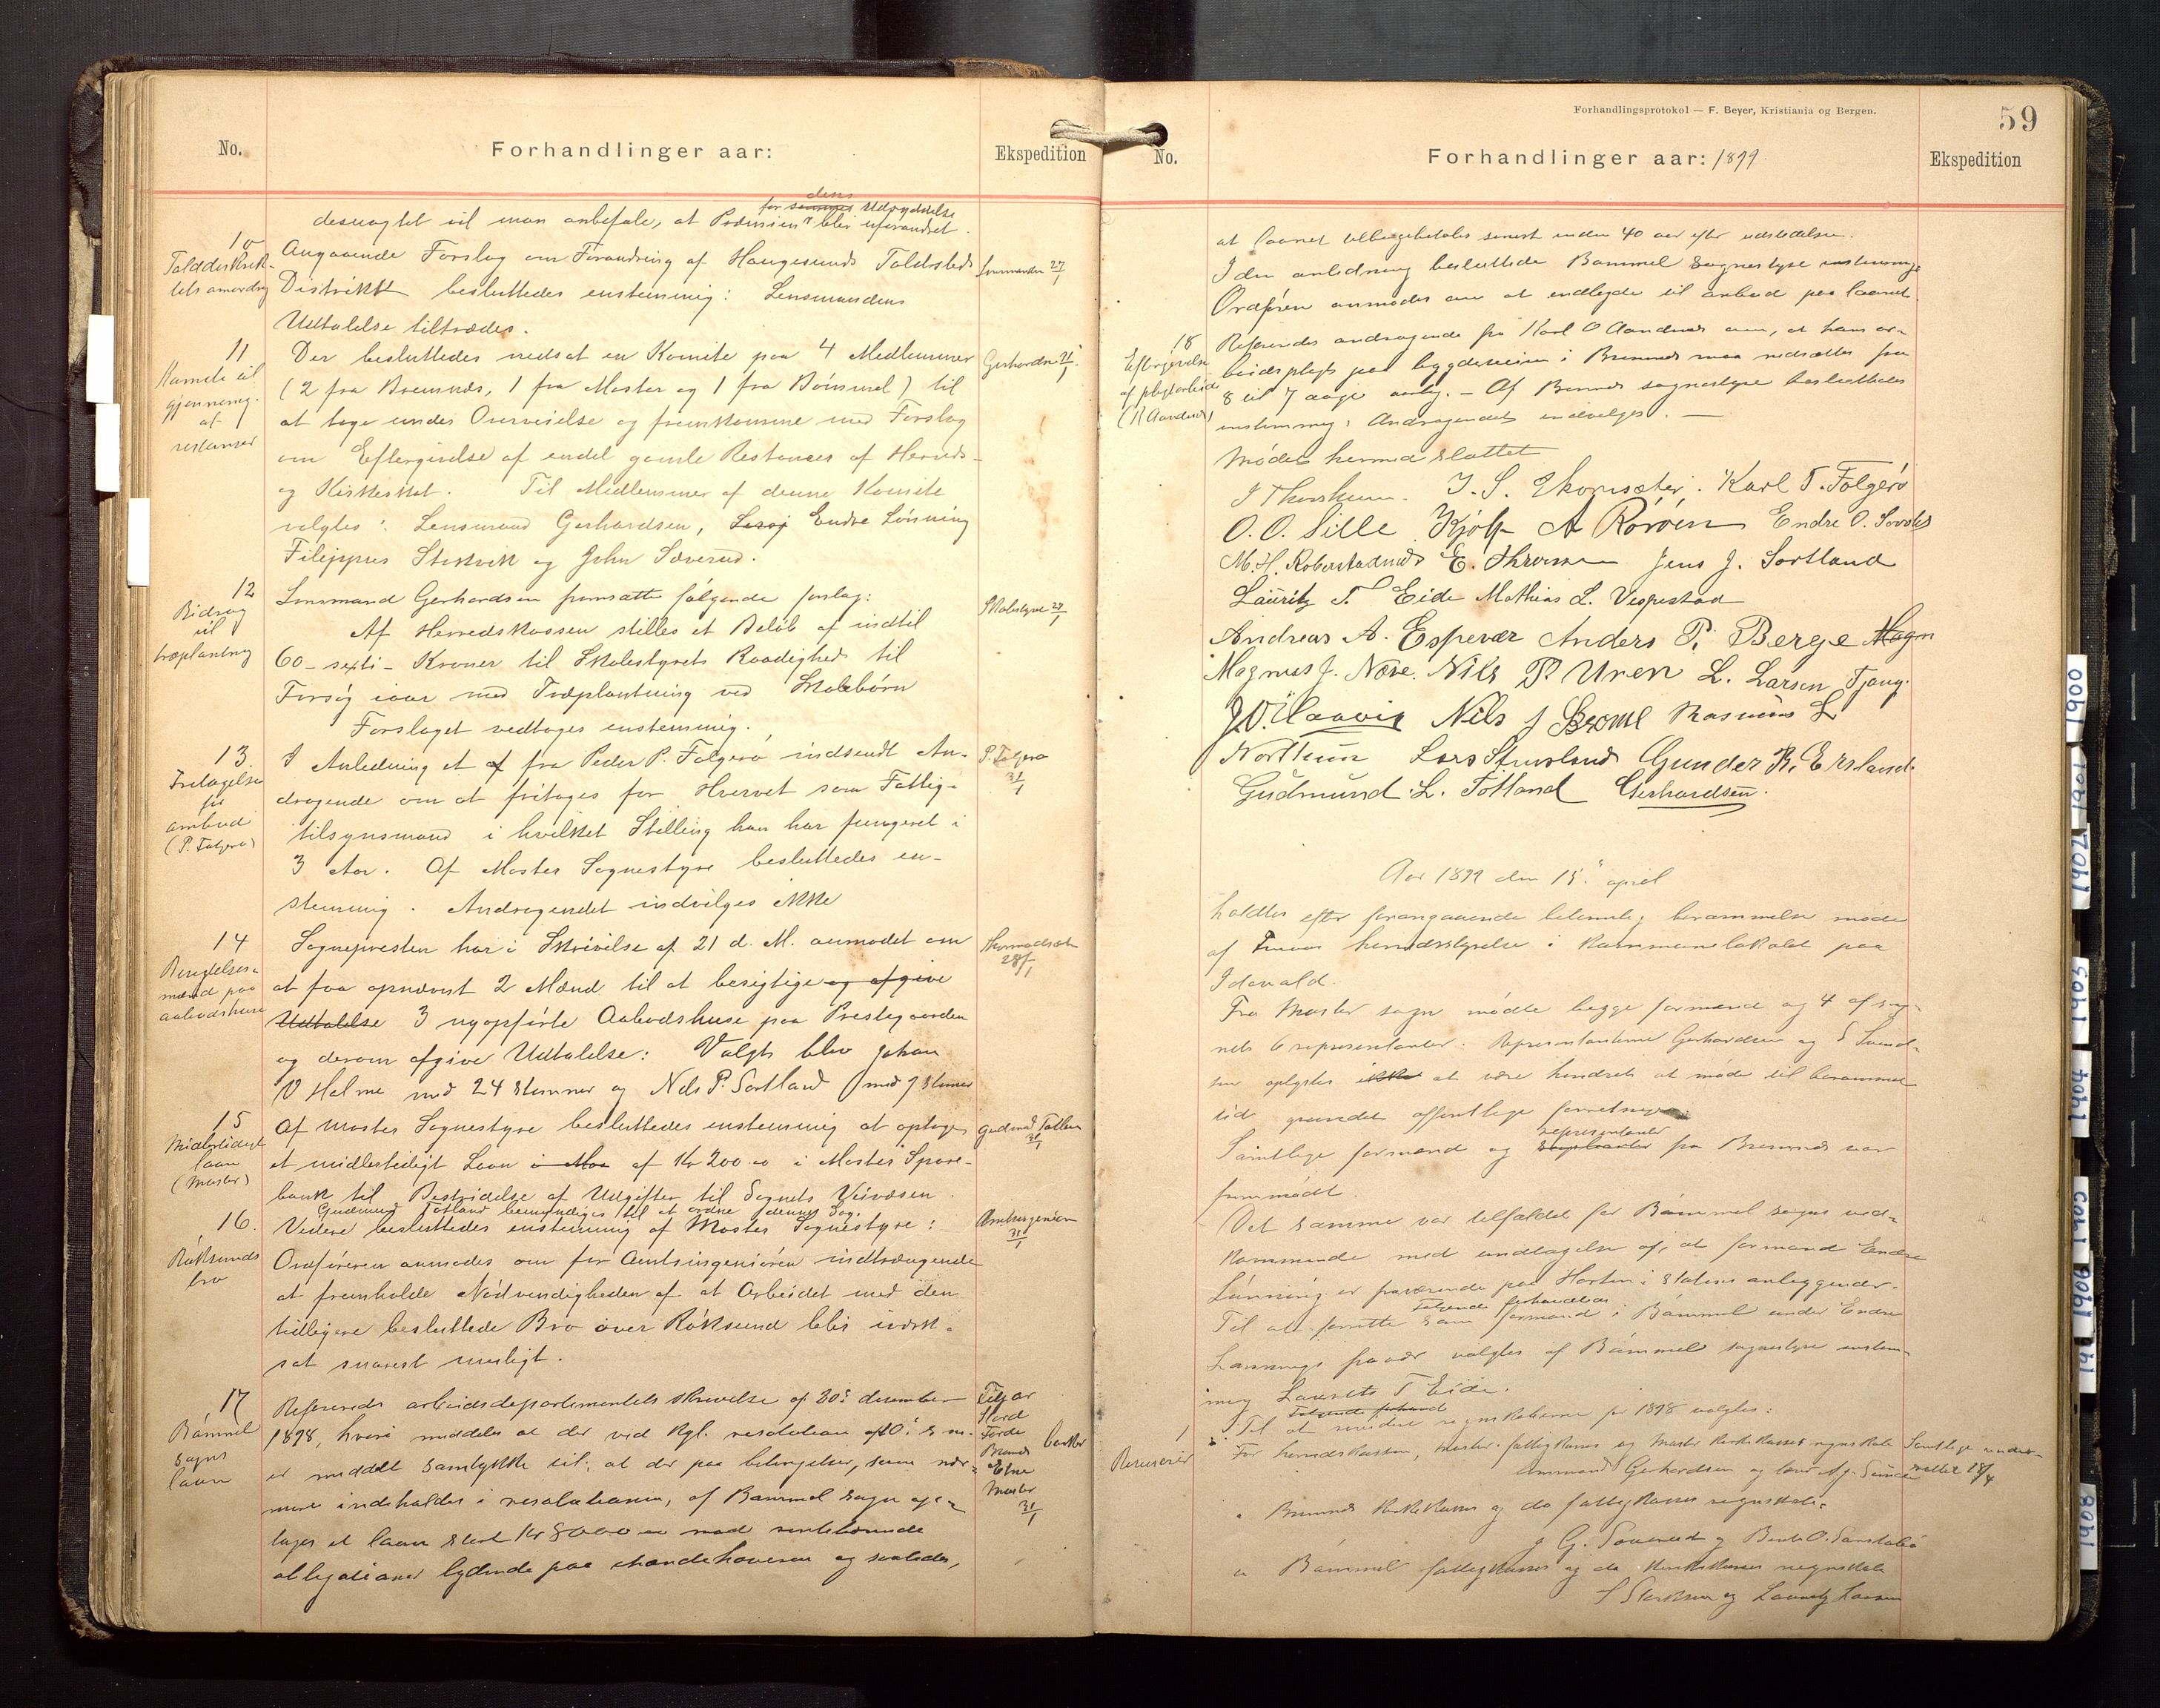 No.
Forhandlinger aar:
Ekspedition
desuagtet vil man anbefale, at Præmien for dens Udryddelse blir uforandret.
10
Tolddistriktets
Angaaende Forslag om Forandring af Haugesunds Toldsteds
Lensmanden 27/1
Distrikt besluttedes enstemmig: Lensmandens
Udtalelse tiltrædes.
11
Komite til
gjennemg.
af
restanser
Der besluttedes nedsat en Komite paa 4 Medlemmer
Gerhardsen
(2 fra Bremnes, 1 fra Moster og 1 fra Bømmel) til
at tage under Overveielse og fremkomme med Forslag
om Eftergivelse af endel gamle Restanser af Herreds-
og Kirkeskat. Til Medlemmer af denne Komite
valgtes: Lensmand Gerhardsen, Endre Lønning
Filippus Stekvik og John Sæverud.
12
Bidrag
til
træplantning
Lensmand Gerhardsen fremsatte følgende forslag:
Skolestyret 27/1
Af Herredskassen stilles et Beløb af indtil
60 - sexti - Kroner til Skolestyrets Raadighed til
Forsøg iaar med Træplantning ved Skolebørn
Forslaget vedtoges enstemmig.
13
Fritagelse
for
ombud
(P. Folgerø)
I Anledning et af fra Peder P. Folgerø indsendt An-
P. Folgerø
31/1
dragende om at fritages for Hvervet som Fattig-
tilsynsmand i hvilket Stilling han har fungeret i
3 Aar. Af Moster Sognestyre besluttedes en-
stemmig. Andragendet indvilges ikke
14
Besigtelses-
mænd paa
aabodshuse
Sognepresten har i Skrivelse af 21 d. M. anmodet om
28/1
at faa opnævnt 2 Mænd til at besigtige og afgive
Udtalelse 3 nyopførte Aabodshuse paa Prestegaarden
og derom afgive Udtalelse: Valgt blev Johan
V Holme med 24 stemmer og Nils P. Sortland med 7 stemmer
15
Midlertidigt
laan
(Moster)
Af Moster Sognestyre besluttedes enstemmig at optage
Gudmd Totland
31/1
et midlertidigt Laan i Mos af Kr 200.00 i Moster Spare-
bank til Bestridelse af Udgifter til Sognets Veivæsen.
Gudmund Totland bemyndiges til at ordne denne Sag.
16.
Røksunds
bro
Videre besluttedes enstemmig af Moster Sognestyre:
Amtsingeniøren
31/1
Ordføreren anmodes om for Amtsingeniøren indtrængende
at fremholde Nødvendigheden af at Arbeidet med den
tidligere besluttede Bro over Røksund blir iverk-
sat snarest muligt.
17
Bømmel
sogns
laan
Refereredes arbeidsdepartementets skrivelse af 30. desember
1898, hvori meddeles at der ved Kgl. resolution af 10. s. m.
er meddelt samtykke til, at der paa betingelser, som nær-
mere indeholdes i resolutionen, af Bømmel sogn op-
tages et laan stort Kr 8000.00 mod rentebærende
obligationer lydende paa ihændehaveren og saaledes,
Fitjar
Stord
Førde
Bremnes
Etne
Moster
banker
31/1
Forhandlingsprotokol — F. Beyer, Kristiania og Bergen.
59
No.
Forhandlinger aar: 1899.
Ekspedition
at laanet tilbagebetales senest inden 40 aar efter udstedelsen.
I den anledning besluttede Bømmel sognestyre enstemmig
Ordføren anmodes om at indhente til anbud paa laanet.
18
Eftergivelse
af pligtarbeide
(K Aandnes)
Refereredes andragende fra Karl O Aandnes om, at hans ar-
beidspligt paa bygdeveien i Bremnes maa nedsættes fra
8 til 7 aarlig. - Af Bremnes sognestyre besluttedes
enstemmig: Andragendet indvilges. -
Mødet hermed sluttet
J Thorsheim. Karl T. Folgerø
O. O. Lille Kjølf A Rørøen Endre O.
M. H. Roberstadnes Jens J. Sortland
Lauritz T. Eide Mathias L. Vespestad
Andreas A. Espevær Anders P. Berge Magn
Magnus J. Nøse. Nils P. Uren L. Larsen Tjong.
J. O. Haavig Nils J Rasmus L
Nortun Lars Gunder R. Ersland.
Gudmund L. Totland Gerhardsen.
Aar 1899 den 15. april
holdtes efter forangaaende betimelig berammelse møde
af herredsstyrelse i kommunelokalet paa
Idavald.
Fra Moster sogn mødte begge formænd og 4 af sog-
nets 6 representanter. Representanterne Gerhardsen og S
oplystes ikke at være hindrede at møde til berammet
tid grundet offentlige forretninger.
Samtlige formænd og representanter fra Bremnes var
fremmødt.
Det samme var tilfældet for Bømmel sogns ved-
kommende med undtagelse af, at formand Endre
Lønning er fraværende paa Horten i statens anliggender.
Til at forrette som formand i Bømmel under Endre
Lønnings fravær valgtes af Bømmel sognestyre enstem-
mig Laurits T Eide.
1
Revisorer
Til at revidere regnskaberne for 1898 valgtes:
For herredskassen, Moster fattigkasses og Moster kirkekasses regnskab
Lensmand Gerhardsen og
Samtlige under-
rettet 18/4
" Bremnes kirkekasses og do fattigkasses regnskab.
J G. Sæverud og Bernt O.
" Bømmel fattigkasses og do kirkekasses regnskab
og Lauritz Larsen
1900
1901
1902
1903
1904
1905
1906
1908